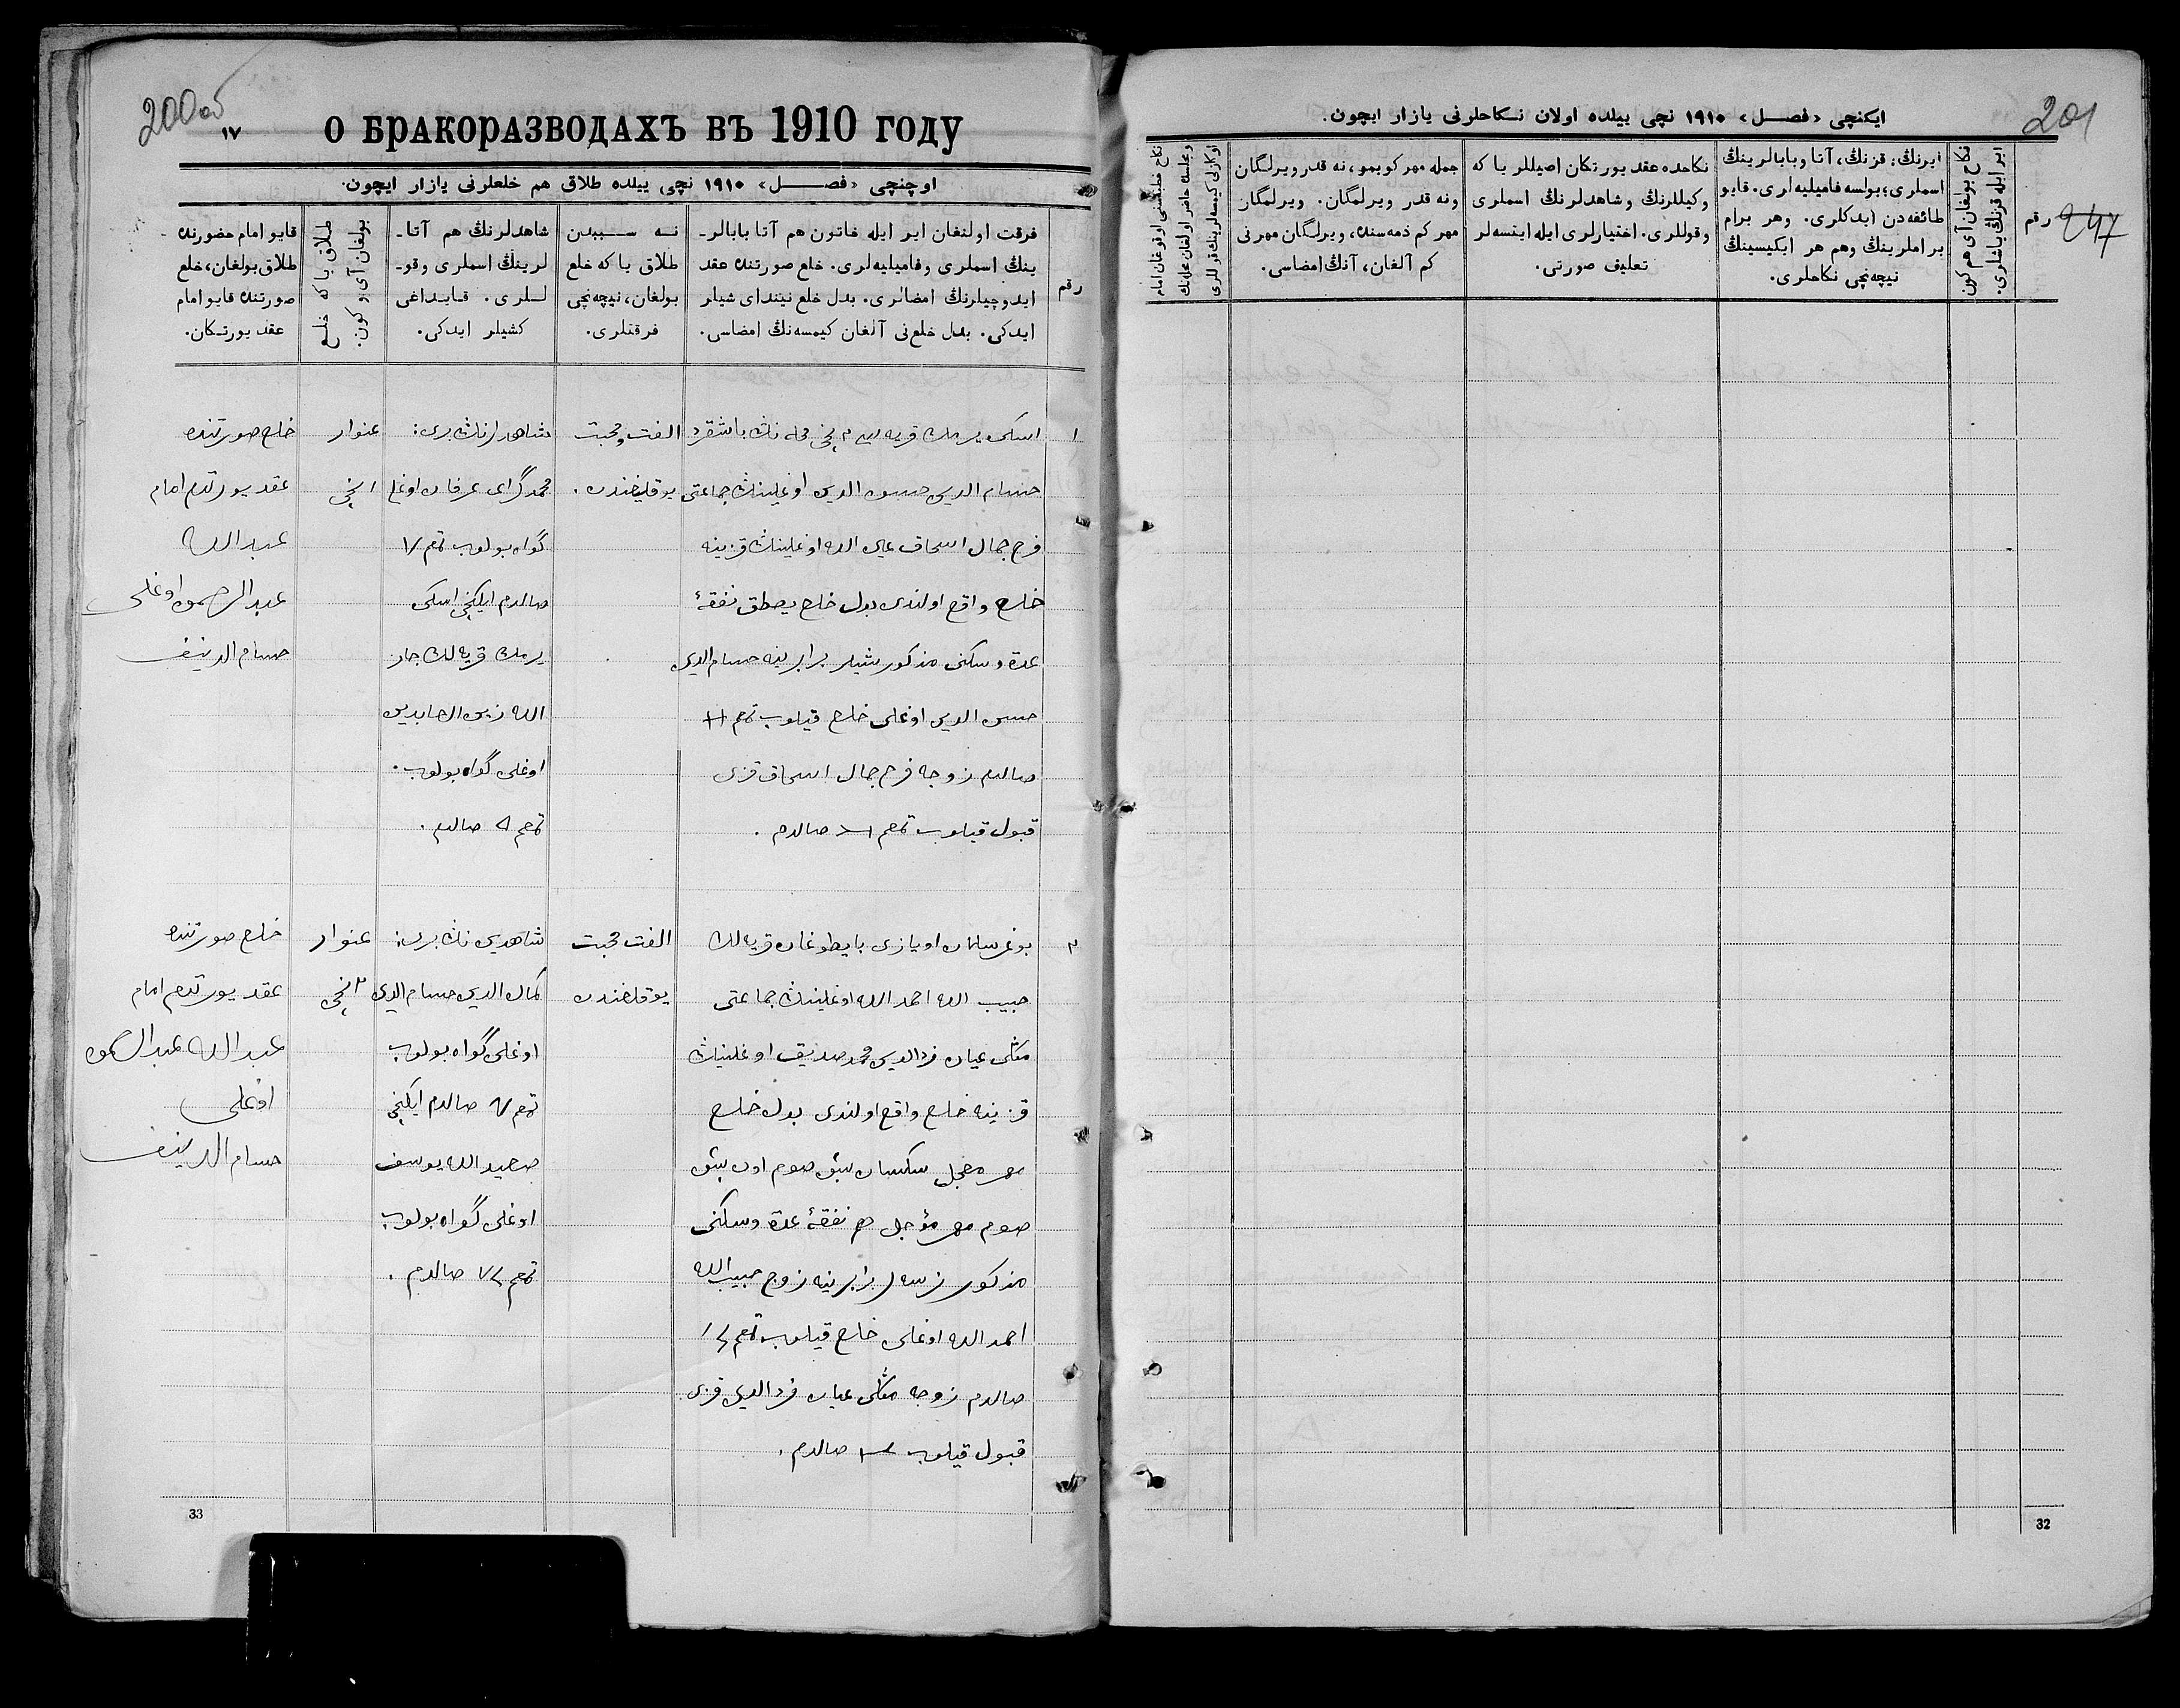 200об
١٧
о БРАКОРАЗВОДАХЪ въ 1910 году
اوچنچی «فصل» ١٩١٠ نچی ییلده طلاق هم خلعلرنی یازار ایچون.
رقم
فرقت اولنغان ایر ایله خاتون هم آتا بابالر-
ینڭ اسملری وفامیلیه‌لری. خلع صورتنده عقد
ایدوچیلرنڭ امضالری. بدل خلع نیندای شیلر
ایدکی. بدل خلع‌نی آلغان کیمسه‌نڭ امضاسی.
نه سببدن
طلاق یا که خلع
بولغان، نیچه‌نچی
فرقتلری.
شاهدلرنڭ هم آتا-
لرینڭ اسملری وقو-
للری. قایداغی
کشیلر ایدکی.
طلاق یا که خلع
بولغان آی و کون.
قایو امام حضورنده
طلاق بولغان، خلع
صورتنده قایو امام
عقد یورتکان.
١
اسکی یرمك قریه سی ٢ نچی محله نڭ باشقرد
حسام الدین حسن الدین اوغلینڭ جماعتی
فرح جمال اسحاق اوغلینڭ قزینه
خلع واقع اولندی بدل خلع نفقهٔ
عدة وسکنی مذکور شیلر برابرینه حسام الدین
حسن الدین اوغلی خلع قیلوب تمغام
صالدم زوجه فرح جمال اسحاق قزی
قبول قیلوب تمغام صالدم.
الفت ومحبت
یوقلیغندن.
شاهدلرنڭ بری:
محمدگرای عرفان اوغلی
گواه بولوب تمغام
صالدم ایکنچی اسکی
یرمك قریه لك جان
الله زین العابدین
اوغلی گواه بولوب.
تمغام صالدم.
غنوار
١ نچی
خلع صورتنده
عقد یورتدم امام
عبدالله
عبدالرحمن اوغلی
حسام الدینف
٢
بوغرسلان اویازی بایطوغان قریه لك
حبیب الله احمد الله اوغلینڭ جماعتی
محمد صدیق اوغلینڭ
قزینه خلع واقع اولندی بدل خلع
مهر معجل سکسان بیش صوم اون بیش
صوم مهر مؤجل هم نفقهٔ عدة وسکنی
مذکور نرسه لر برابرینه زوج حبیب الله
احمد الله اوغلی خلع قیلوب تمغام
صالدم زوجه قزی
قبول قیلوب صالدم.
الفت محبت
یوقلغندن
شاهدین نڭ بری:
کمال الدین حسام الدین
اوغلی گواه بولوب
تمغام صالدم ایکنچی
یوسف
اوغلی گواه بولوب
تمغام صالدم.
غنوار
٢ نچی
خلع صورتنده
عقد یورتدم امام
عبدالله عبدالرحمن
اوغلی
حسام الدینف
33
ایکنچی «فصل» ١٩١٠ نچی ییلده اولان نکاحلرنی یازار ایچون.
201
247
رقم
نکاح بولغان آی هم کون
ایر ایله قزنڭ یاشلری.
ایرنڭ، قزنڭ، آتا وبابالرینڭ
اسملری؛ بولسه فامیلیه‌لری. قایو
طائفه‌دن ایدکلری. وهر برام
براملرینڭ وهم هر ایکیسینڭ
نیچه‌نچی نکاحلری.
نکاحده عقد یورتکان اصیللر یا که
وکیللرنڭ وشاهدلرنڭ اسملری
وقوللری. اختیارلری ایله ایتسه‌لر
تعلیف صورتی.
جمله مهر کوبمو، نه قدر ویرلگان
ونه قدر ویرلمگان. ویرلمگان
مهر کم ذمه‌سنده، ویرلگان مهرنی
کم آلغان، آنڭ امضاسی.
نکاح خطبه‌سنی اوقوغان امام
32